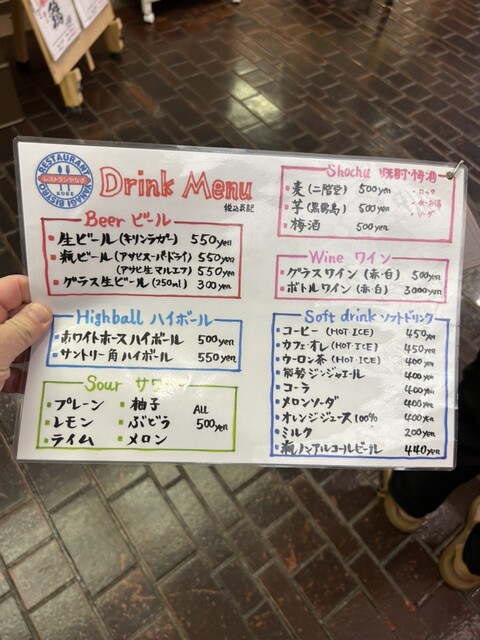 RESTAURANT YANAGI BISTRO
レストランやなぎ
KOBE
Drink Menu
税込表記
Beer ビール
生ビール(キリンラガー) 550yen
瓶ビール(アサヒスーパードライ) 550yen
(アサヒ生マルエフ) 550yen
グラス生ビール(250ml) 300yen
Highball ハイボール
ホワイトホースハイボール 500yen
サントリー角ハイボール 550yen
Sour サワー
プレーン
レモン
ライム
柚子
ぶどう
メロン
ALL
500yen
Shochu 焼酎・梅酒
麦(二階堂) 500yen
芋(黒霧島) 500yen
梅酒 500yen
・ロック
・水・お湯
・ソーダ
Wine ワイン
グラスワイン(赤・白) 500yen
ボトルワイン(赤・白) 3000yen
Soft drink ソフトドリンク
コーヒー(HOT・ICE) 450yen
カフェオレ(HOT・ICE) 450yen
ウーロン茶(HOT・ICE) 400yen
能勢ジンジャエール 400yen
コーラ 400yen
メロンソーダ 400yen
オレンジジュース100% 400yen
ミルク 200yen
瓶ノンアルコールビール 440yen